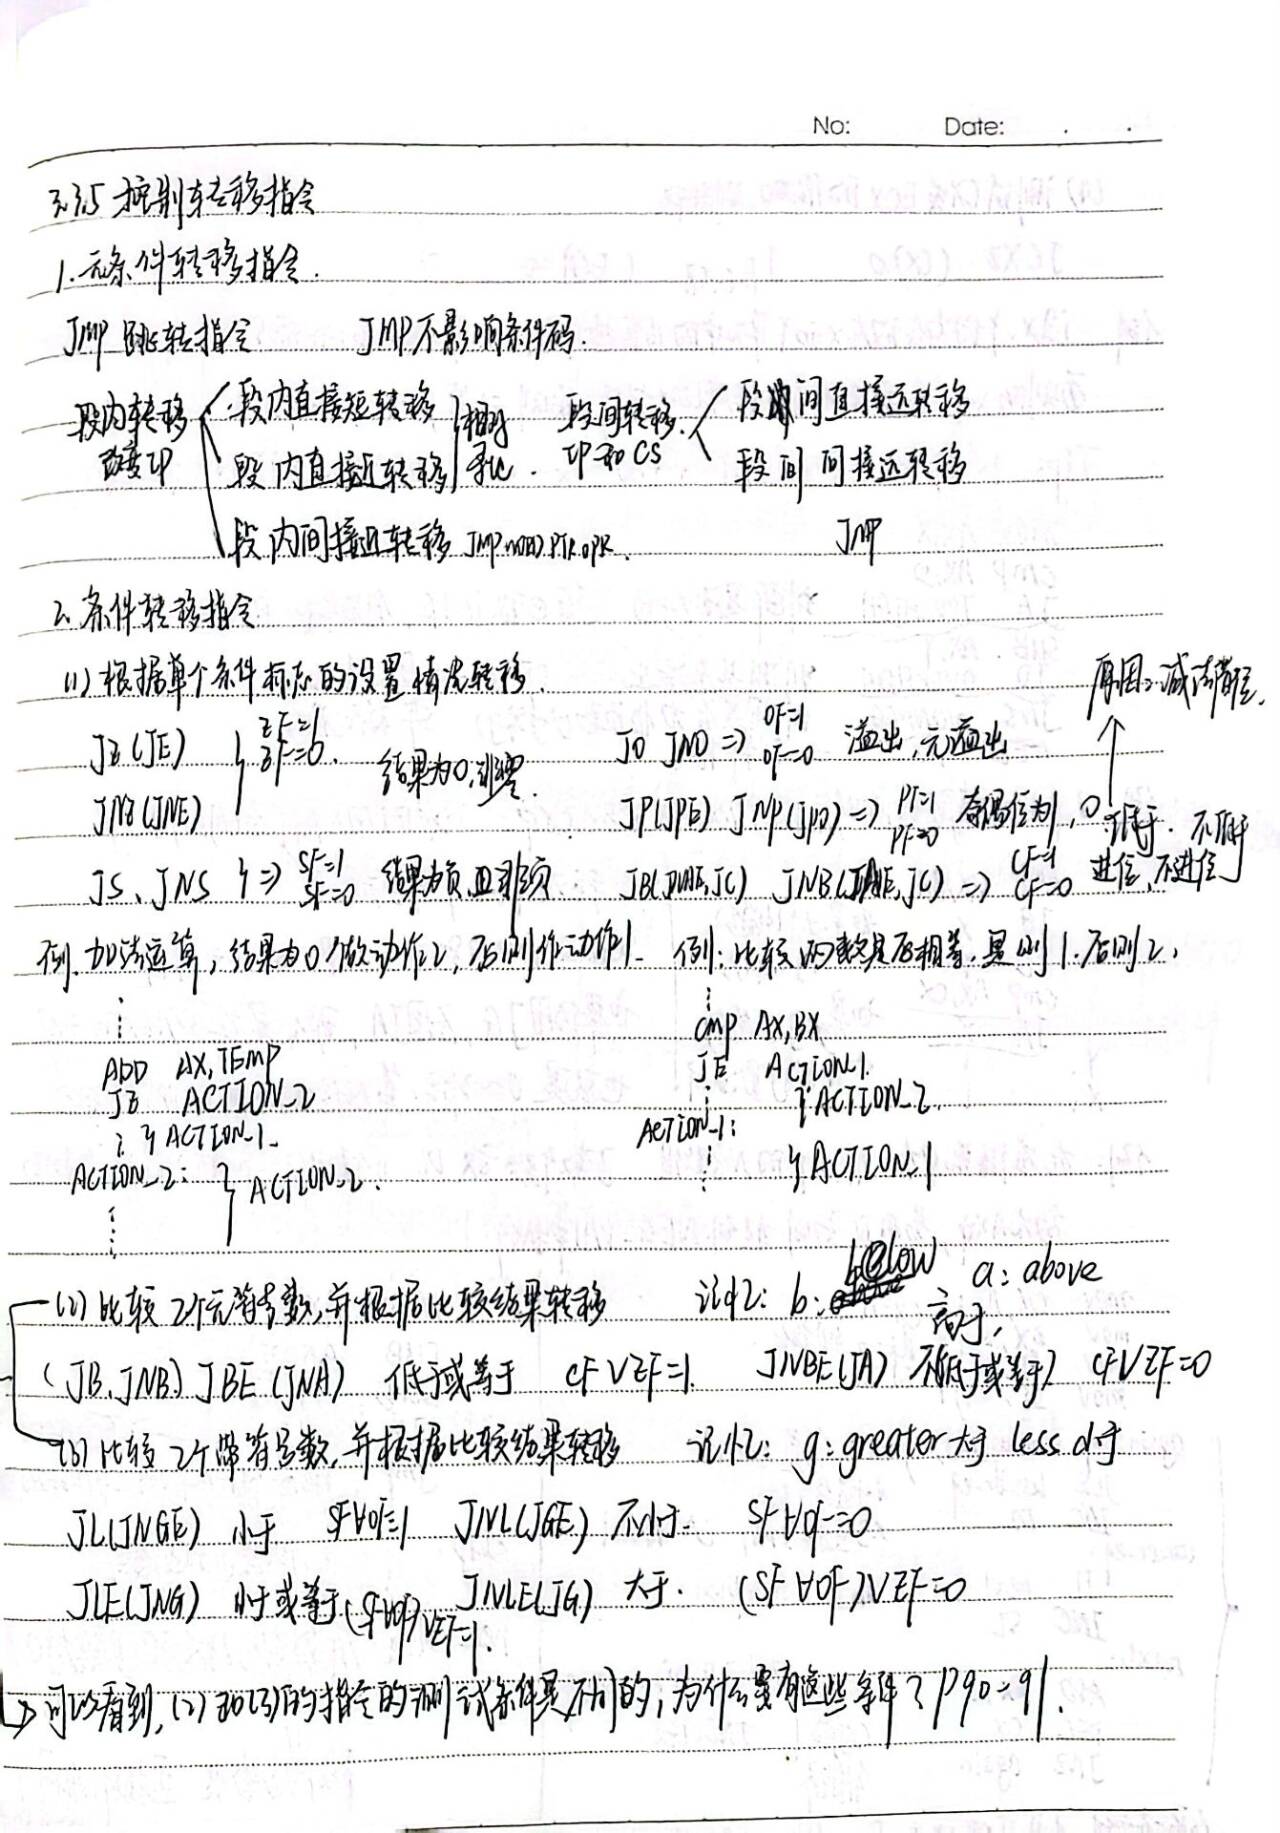 No: Date: . .
3.3.5 控制转移指令
1. 无条件转移指令.
JMP 跳转指令 JMP不影响条件码.
段内转移 段内直接短转移 段间转移. 段间直接远转移
改变IP 段内直接近转移 IP和CS 段间间接远转移
段内间接近转移 JMP WORD PTR OPR. JMP
2. 条件转移指令
(1) 根据单个条件标志的设置情况转移. 原因: 减法借位.
JZ (JE) } ZF=1 JO JNO => OF=1 溢出, 无溢出
ZF=0. 结果为0, 非零. OF=0
JNZ(JNE) JP(JPE) JNP(JPO) => PF=1 奇偶位为1, 0 低于. 不低于
PF=0
JS、JNS } => SF=1 结果为负, 且非负 JB(JNAE, JC) JNB(JAE, JC) => CF=1 进位, 不进位
SF=0 CF=0
例. 加法运算, 结果为0做动作2, 否则作动作1. 例: 比较两数是否相等. 是则1. 否则2.
ADD AX,TEMP CMP AX,BX
JZ ACTION_2 JE ACTION_1.
} ACTION_1. } ACTION_2.
ACTION_2: } ACTION_2. ACTION_1:
} ACTION_1
(2) 比较2个无符号数, 并根据比较结果转移 记忆: b: below a: above
高于.
(JB、JNB) JBE (JNA) 低于或等于 CF∨ZF=1. JNBE(JA) 不低于或等于 CF∨ZF=0
(3) 比较2个带符号数, 并根据比较结果转移 记忆: g: greater 大于 less 小于
JL(JNGE) 小于 SF∀OF=1 JNL(JGE) 不小于. SF∀OF=0
JLE(JNG) 小于或等于 (SF∀OF)∨ZF=1. JNLE(JG) 大于. (SF∀OF)∨ZF=0
可以看到, (2)和(3)的指令的测试条件是不同的, 为什么要有这些条件? P90-91.